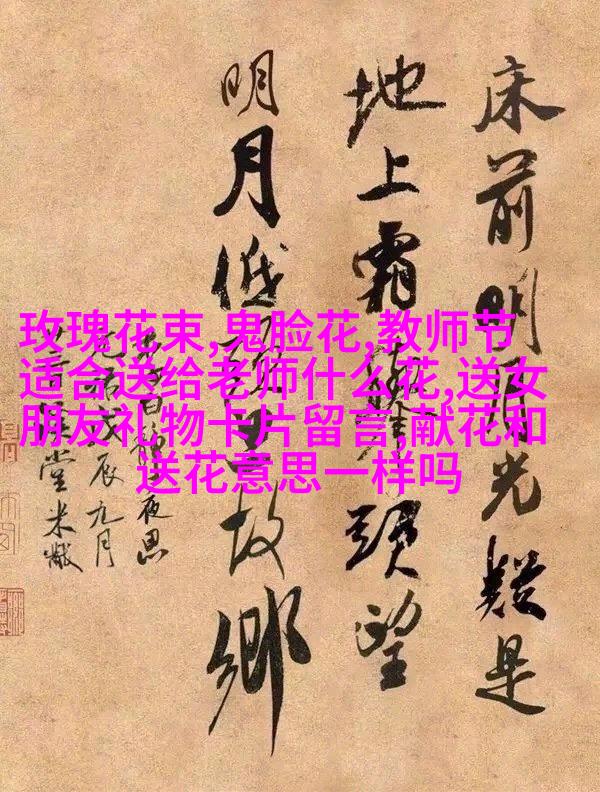 床前明月光疑是
地上霜舉頭望
明月低頭思故鄉
白夜思
元祐戊辰九月
堂米黻
玫瑰花束,鬼脸花,教师节
适合送给老师什么花,送女
朋友礼物卡片留言,献花和
送花意思一样吗